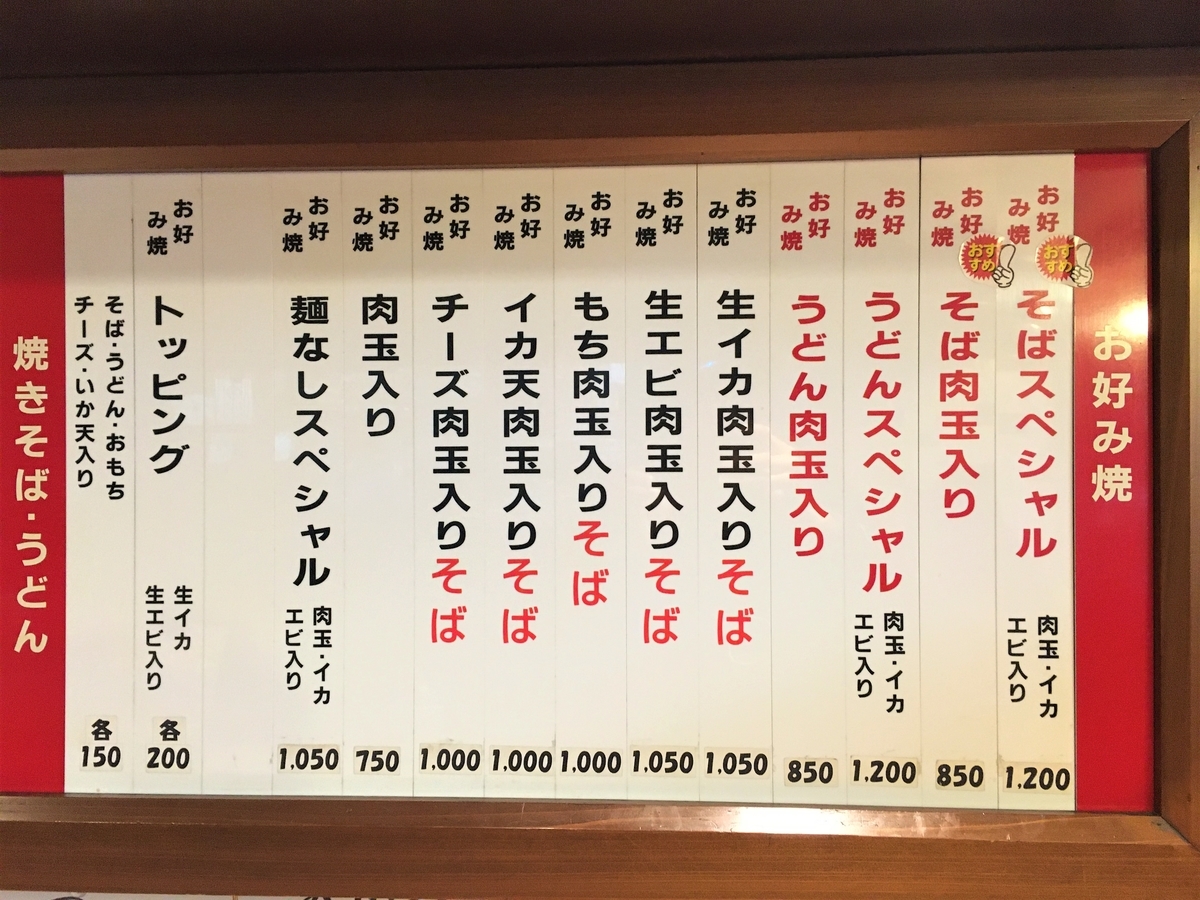 お好み焼
お好み焼
おすすめ
そばスペシャル
肉玉・イカ
エビ入り
1,200
お好み焼
おすすめ
そば肉玉入り
850
お好み焼
うどんスペシャル
肉玉・イカ
エビ入り
1,200
お好み焼
うどん肉玉入り
850
お好み焼
生イカ肉玉入りそば
1,050
お好み焼
生エビ肉玉入りそば
1,050
お好み焼
もち肉玉入りそば
1,000
お好み焼
イカ天肉玉入りそば
1,000
お好み焼
チーズ肉玉入りそば
1,000
お好み焼
肉玉入り
750
お好み焼
麺なしスペシャル
肉玉・イカ
エビ入り
1,050
お好み焼
トッピング
生イカ
生エビ入り
各
200
そば・うどん・おもち
チーズ・いか天入り
各
150
焼きそば・うどん